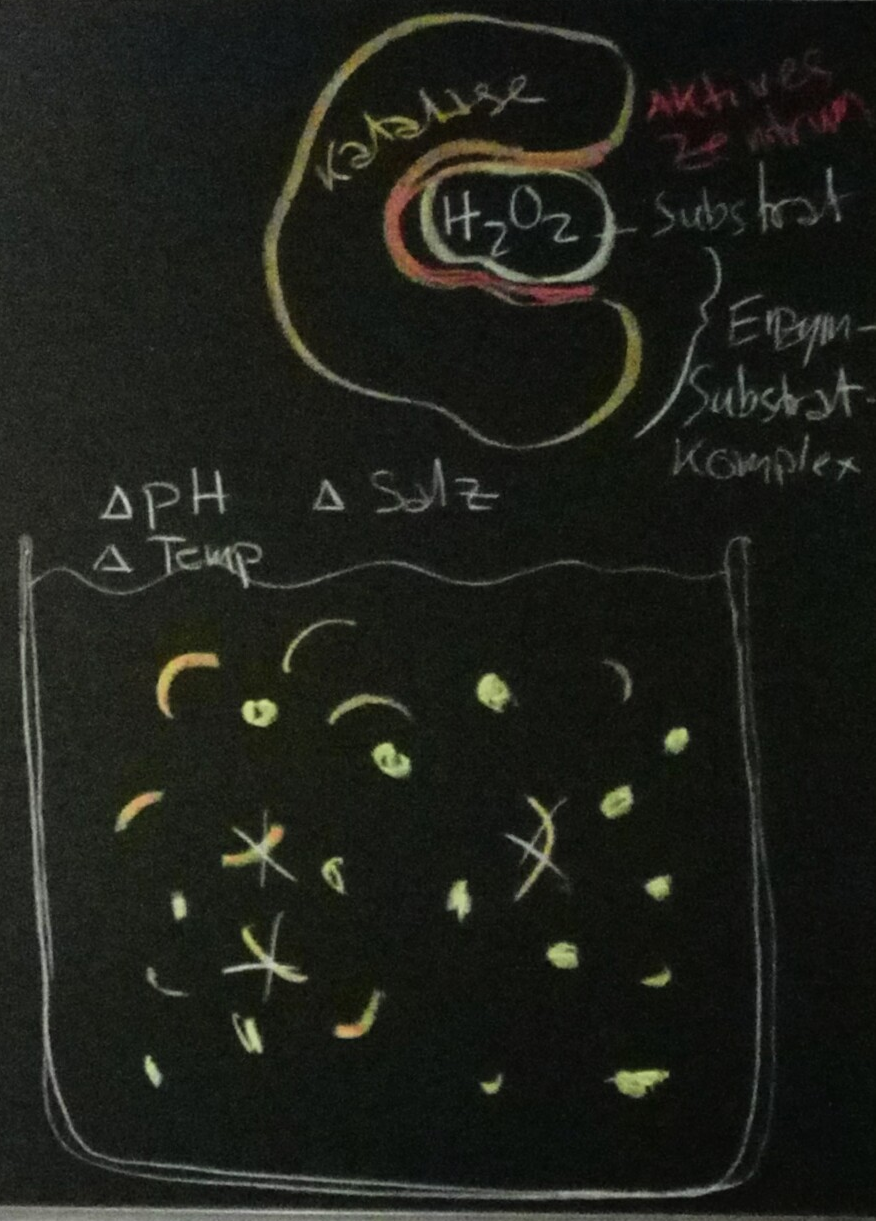 Katalase
Aktives
Zentrum
H2O2
Substrat
Enzym-
Substrat-
Komplex
ΔpH Δ Salz
Δ Temp